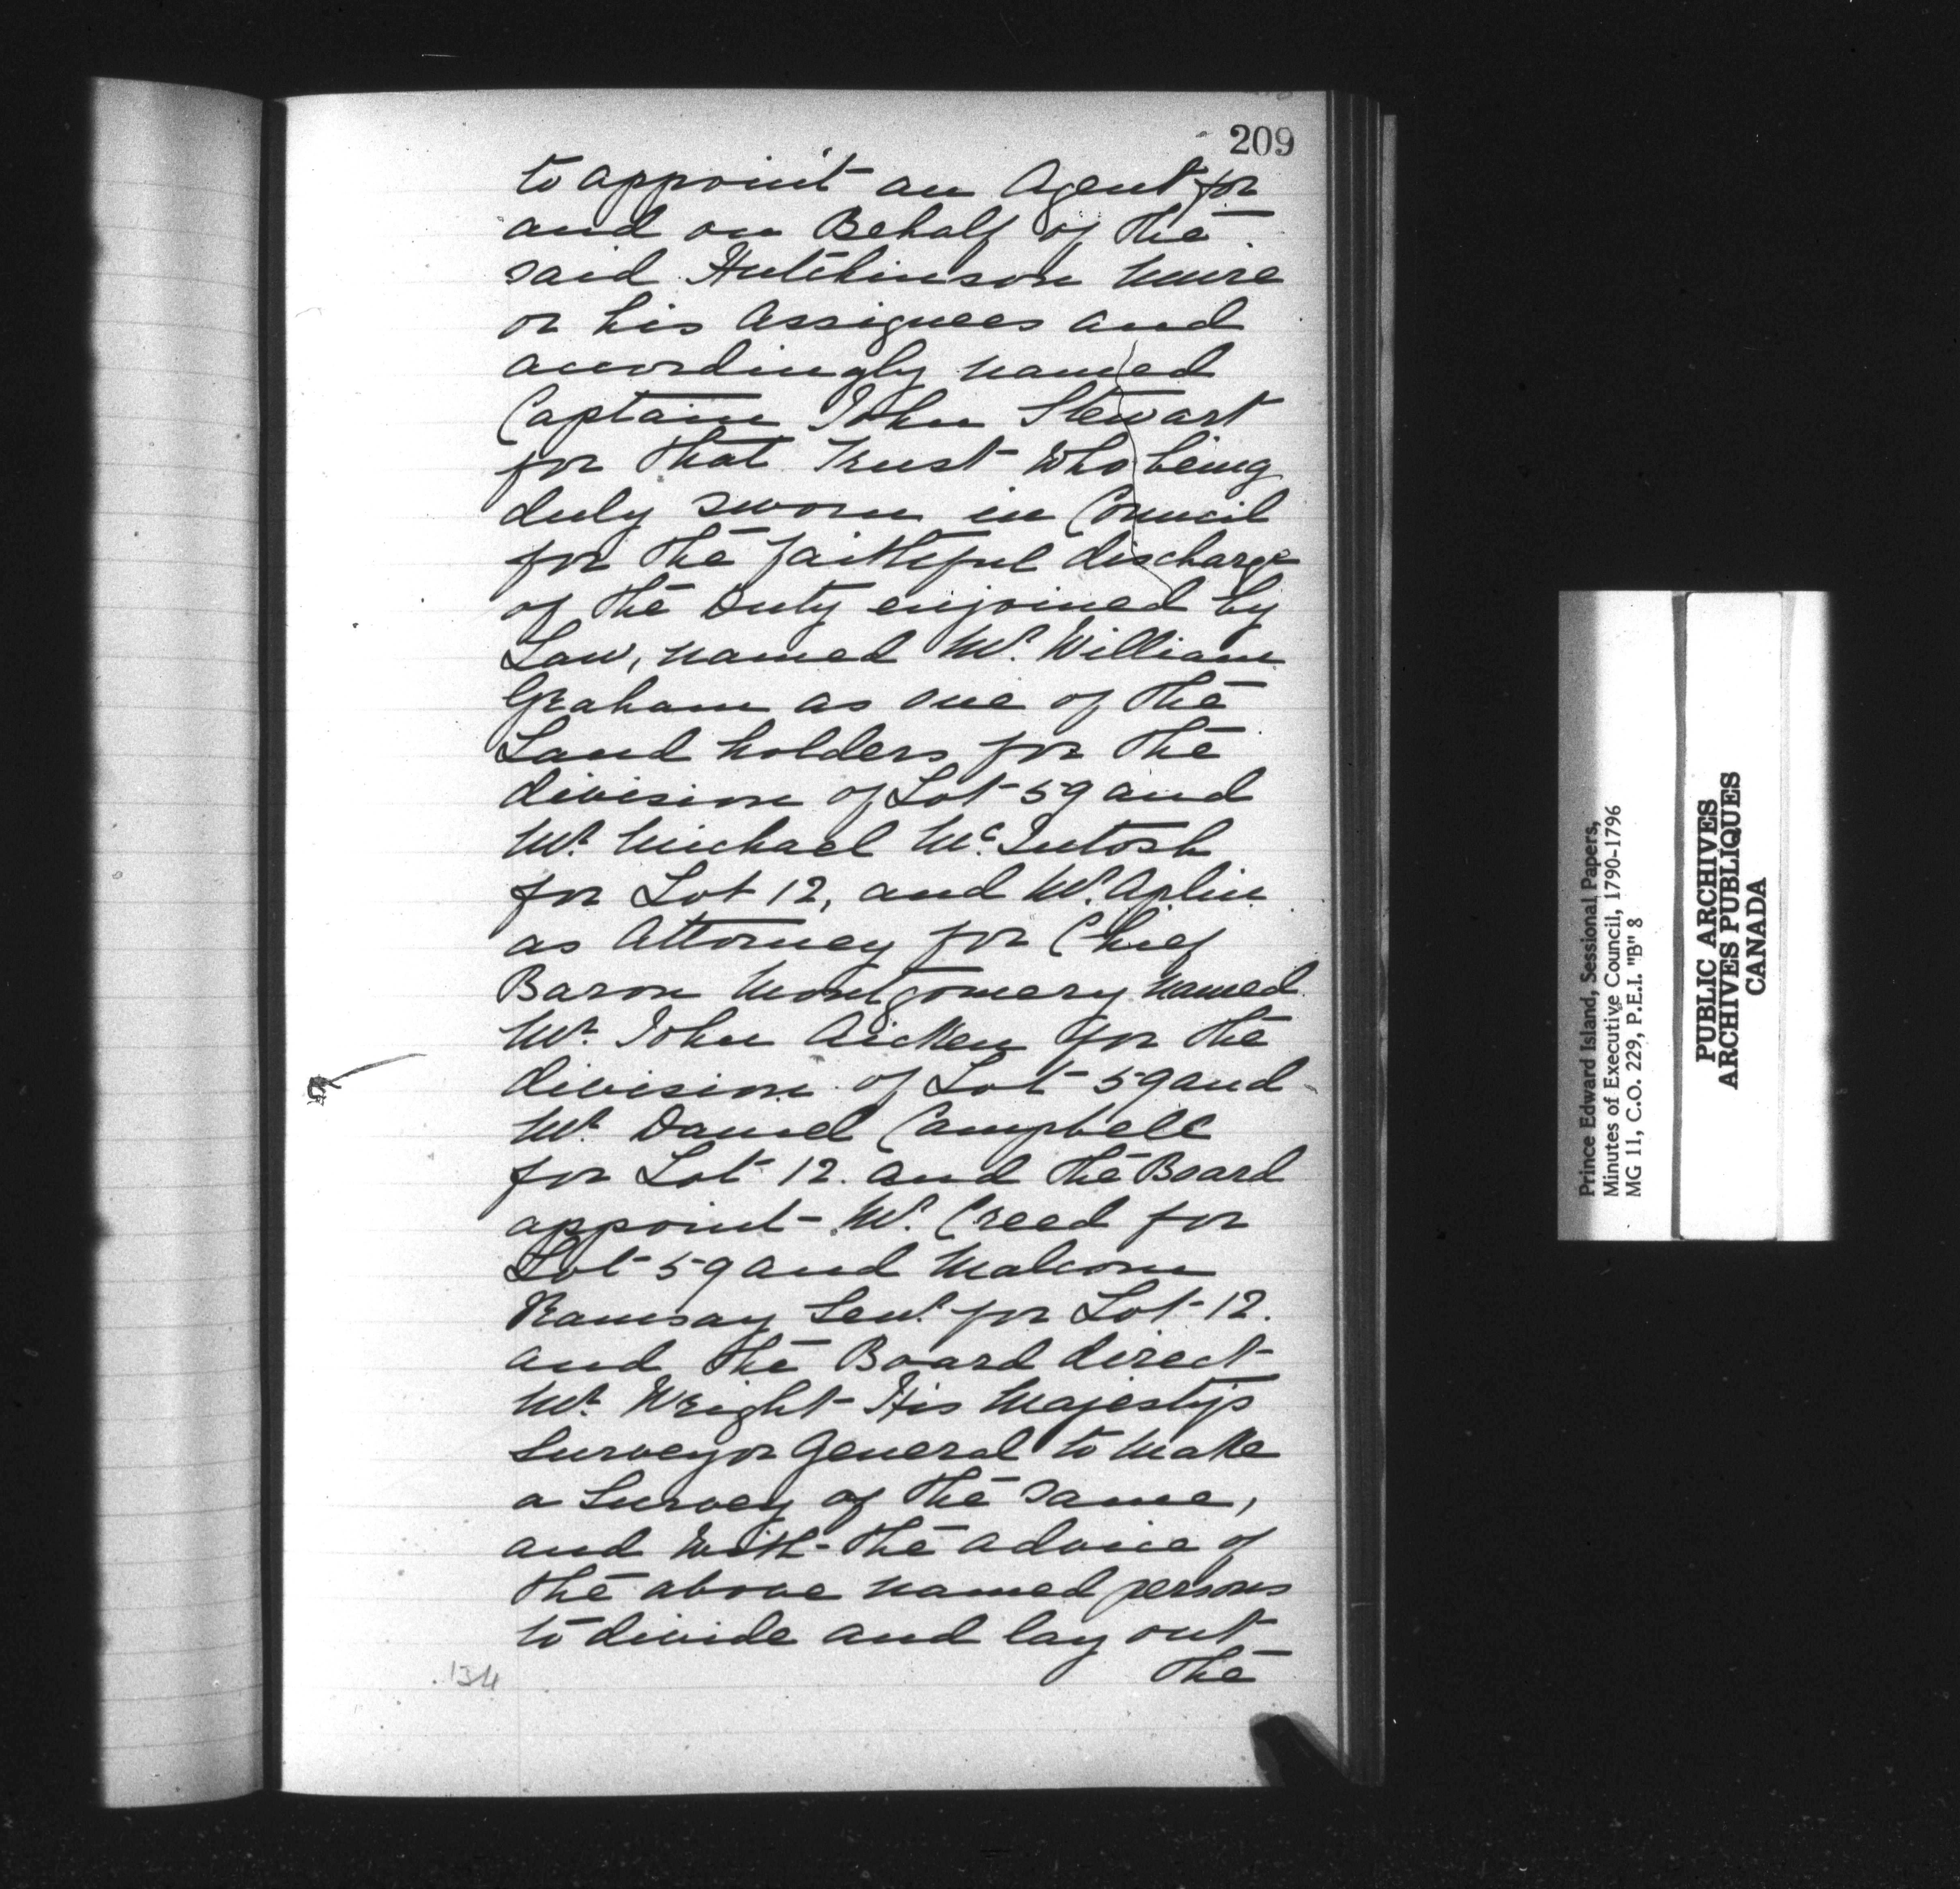 209
to appoint an Agent for
and on Behalf of the
said Hutchinson Mure
or his Assignees and
accordingly named
Captain John Stewart
for that Trust who being
duly sworn in Council
for the faithful discharge
of the Duty enjoined by
Law, named Mr. William
Graham as one of the
Land holders for the
division of Lot 59 and
Mr. Michael Mc.Intosh
for Lot 12, and Mr. Aplin
as Attorney for Chief
Baron Montgomery named
Mr. John Aitken for the
division of Lot 59 and
Mr. Daniel Campbell
for Lot 12. and the Board
appoint Mr. Creed for
Lot 59 and Malcom
Ramsay Senr. for Lot 12.
and the Board direct
Mr. Wright His Majesty's
Surveyor General to make
a Survey of the same,
and with the advice of
the above named persons
to divide and lay out
the
134
Prince Edward Island, Sessional Papers,
Minutes of Executive Council, 1790-1796
MG 11, C.O. 229, P.E.I. "B" 8
PUBLIC ARCHIVES
ARCHIVES PUBLIQUES
CANADA